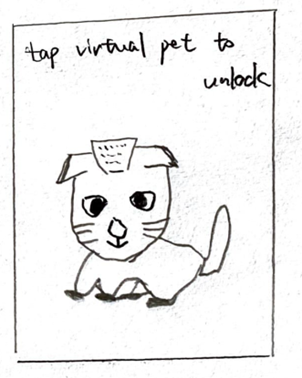 tap virtual pet to
unlock